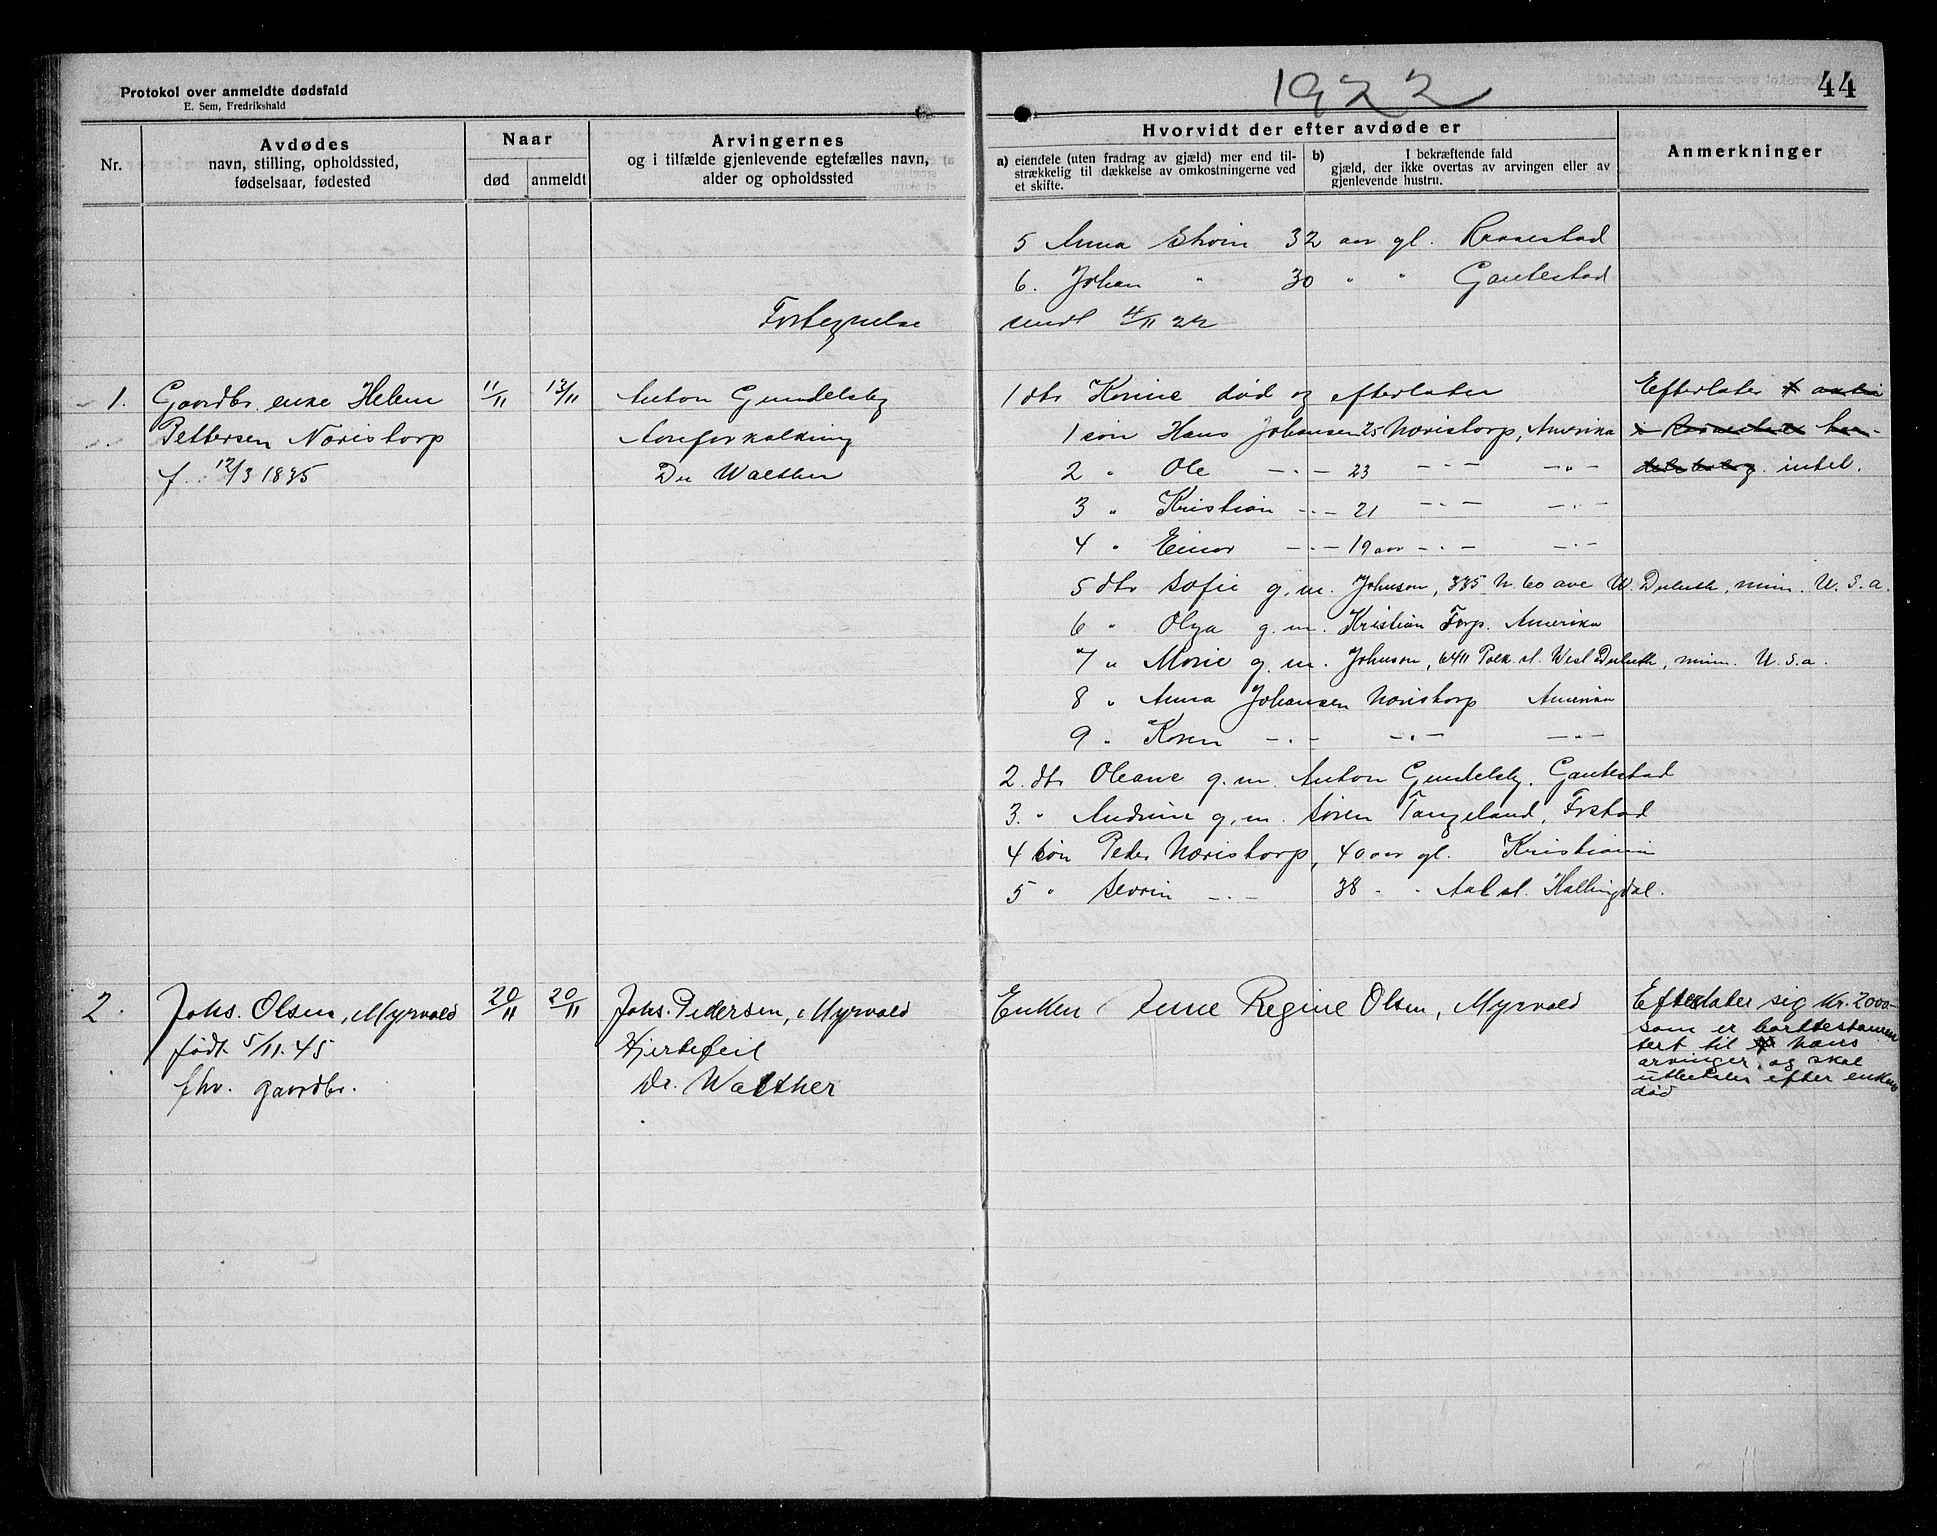 Protokol over anmeldte dødsfald
E. Sem, Fredrikshald
Nr.
Avdødes
navn, stilling, opholdssted,
fødselsaar, fødested
Naar
død
anmeldt
Arvingernes
og i tilfælde gjenlevende egtefælles navn,
alder og opholdssted
1922
44
Hvorvidt der efter avdøde er
a) eiendele (uten fradrag av gjæld) mer end til-
strækkelig til dækkelse av omkostningerne ved
et skifte.
b) I bekræftende fald
gjæld, der ikke overtas av arvingen eller av
gjenlevende hustru.
Anmerkninger
5 Anna 32 aar gl.
6. Johan " 30 " " Gautestad
Fortegnelse sendt 4/11 22
1. Gaardbr. enke Helene 11/11 13/11 Anton Gundelsby
Pettersen Navestorp Aareforkalkning
f. 12/3 1835 Dr Walther
1 dtr Karine død og efterlater
1 søn Hans Johansen 25 Navestorp, Amerika
2 " Ole -"- 23 -"- -"-
3 " Kristian -"- 21 -"- -"-
4 " Einar -"- 19 aar -"- -"-
5 dtr Sofie g.m. Johnson, 335 N. 60 ave W. Duluth, minn. U.S.a.
6 " Olga g.m. Kristian Torp. Amerika
7 " Marie g.m. Johnson, 6411 Polk. st. West Duluth, minn. U.S.a.
8 " Anna Johansen Navestorp Amerika
9 " Karen -"- -"- -"-
2. dtr Oleane g.m. Anton Gundelsby, Gautestad
3. " Andrine g.m. Søren Tangeland,
4 søn Peder Navestorp, 40 aar gl. Kristiania
5 " Sevrin -"- 38 " " Aal st. Hallingdal.
Efterlater
intet.
2. Johs. Olsen, Myrvold 20/11 20/11 Johs. Pedersen, Myrvold
født 5/11.45 Hjertefeil
fhv. gaardbr. Dr. Walther
Enken Anne Regine Olsen, Myrvold
Efterlater sig kr. 2000-
som er borttestamen
tert til hans
arvinger, og skal
utbetales efter enkens
død